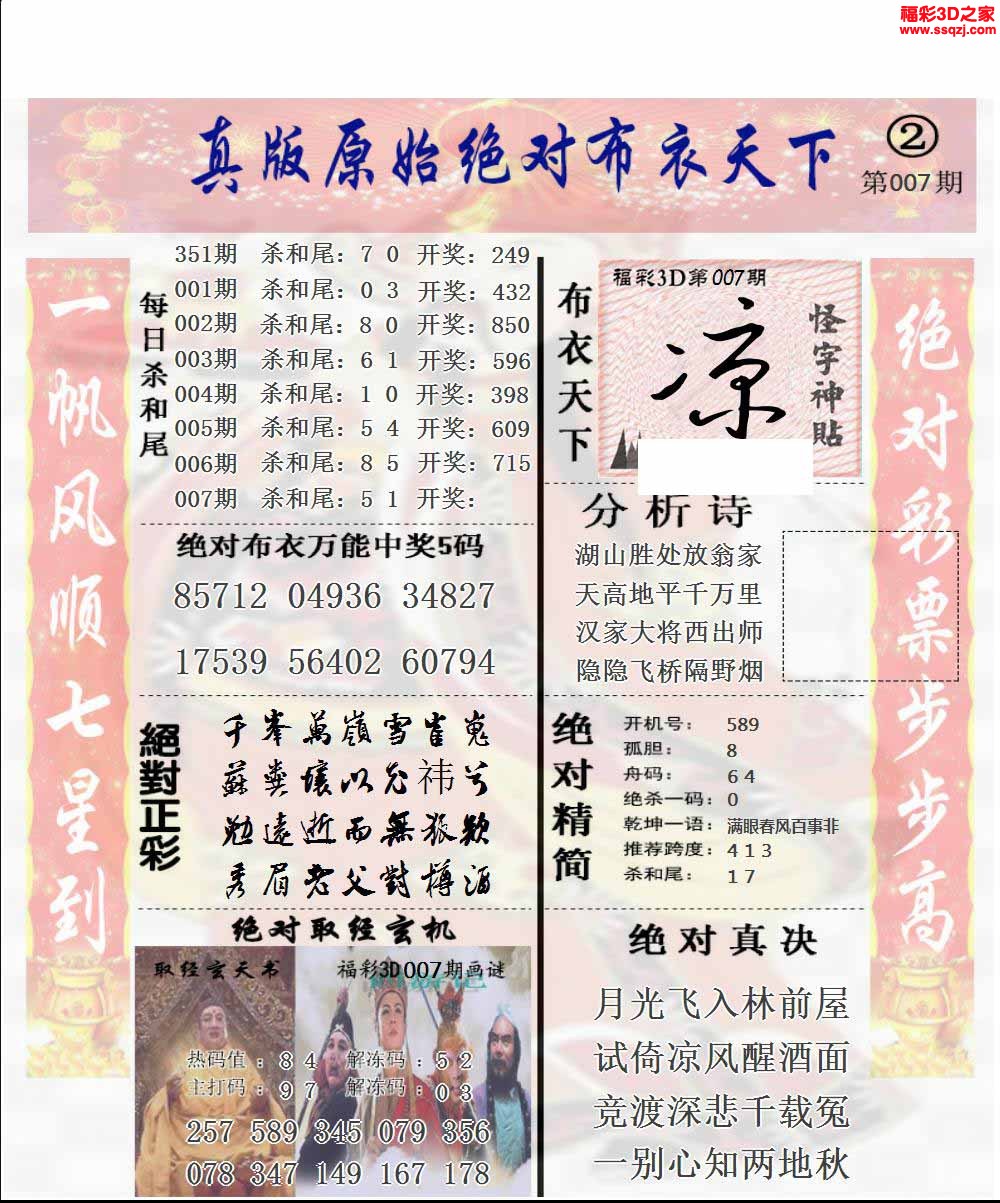 福彩3D之家
www.ssqzj.com
真版原始绝对布衣天下
②
第007期
一帆风顺七星到
每日杀和尾
351期 杀和尾：7 0 开奖：249
001期 杀和尾：0 3 开奖：432
002期 杀和尾：8 0 开奖：850
003期 杀和尾：6 1 开奖：596
004期 杀和尾：1 0 开奖：398
005期 杀和尾：5 4 开奖：609
006期 杀和尾：8 5 开奖：715
007期 杀和尾：5 1 开奖：
绝对布衣万能中奖5码
85712 04936 34827
17539 56402 60794
絕對正彩
千峯萬嶺雪崔嵬
蘇糞壤以充祎兮
勉遠逝而無狐疑
秀眉老父對樽酒
绝对取经玄机
取经玄天书
福彩3D007期画谜
热码值：8 4 解冻码：5 2
主打码：9 7 解冻码：0 3
257 589 345 079 356
078 347 149 167 178
布衣天下
福彩3D第007期
凉
怪字神贴
分析诗
湖山胜处放翁家
天高地平千万里
汉家大将西出师
隐隐飞桥隔野烟
绝对精简
开机号：589
孤胆：8
舟码：6 4
绝杀一码：0
乾坤一语：满眼春风百事非
推荐跨度：4 1 3
杀和尾：1 7
绝对真决
月光飞入林前屋
试倚凉风醒酒面
竞渡深悲千载冤
一别心知两地秋
绝对彩票步步高